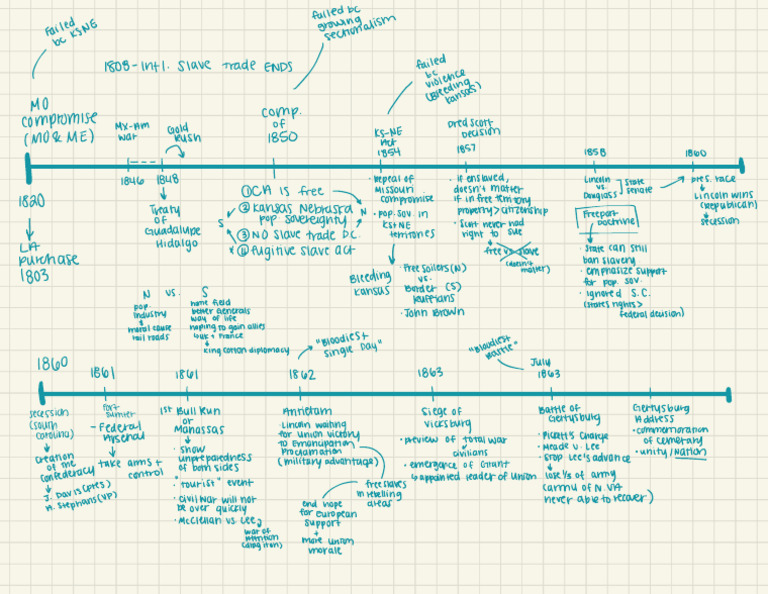 Failed
bc KSNE
failed bc
growing
sectionalism
1808-Intl. Slave Trade ENDS
failed
bc
violence
(Bleeding
Kansas)
MO
compromise
(MO & ME)
Mx-Am
war
Gold
Rush
comp.
of
1850
KS-NE
Act
1854
Dred Scott
Decision
1857
1858
1860
1846
1848
1820
LA
purchase
1803
Treaty
of
Guadalupe
Hidalgo
① CA is free
② Kansas Nebraska
pop. sovereignty
③ NO slave trade DC
④ fugitive slave act
S
N
• Repeal of
Missouri
compromise
• pop. sov. in
KS & NE
territories
Bleeding
Kansas
• Free soilers (N)
vs.
Border (S)
Ruffians
• John Brown
• if enslaved,
doesn't matter
if in free territory
property > citizenship
• Scott never had
right to sue
free vs slave
(doesn't
matter)
Lincoln
vs.
Douglass
State
senate
Freeport
Doctrine
• State can still
ban slavery
• emphasize support
for pop. sov.
• ignored S.C.
(states rights >
federal decision)
pres. race
Lincoln wins
(Republican)
secession
N vs. S
pop.
industry
moral cause
rail roads
home field
better generals
way of life
hoping to gain allies
4UK + France
King cotton diplomacy
"Bloodiest
Single Day"
"Bloodiest
Battle"
1860
1861
1861
1862
1863
July
1863
secession
(south
carolina)
creation
of the
confederacy
J. Davis (pres)
A. Stephens (VP)
fort
sumter
- Federal
Arsenal
take arms +
control
1st Bull Run
or
Manassas
• show
unpreparedness
of both sides
• "tourist" event
• civil war will not
be over quickly
• McClellan vs. Lee
war of
attrition
(drag it on)
Antietam
• Lincoln waiting
for union victory
to Emancipation
Proclamation
(military advantage)
free slaves
in rebelling
areas
end hope
for European
support
+
more union
morale
Siege of
Vicksburg
• preview of total war
civilians
• emergence of Grant
appointed leader of Union
Battle of
Gettysburg
• Pickett's Charge
• Meade v. Lee
• stop Lee's advance
lose 1/3 of army
(army of N. VA
never able to recover)
Gettysburg
Address
• commemoration
of cemetary
• unity/nation